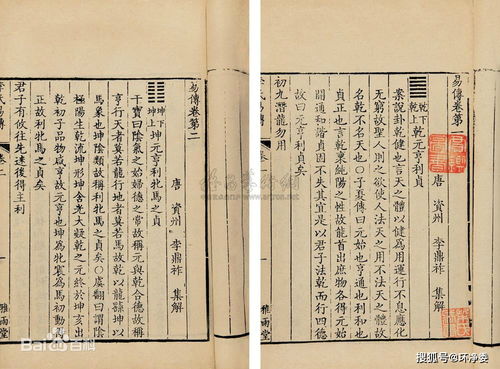 易傳卷第一
唐 資州 李鼎祚 集解
乾下
乾上 乾元亨利貞
案說卦乾健也言天之體以健為用運行不息應化
无窮故聖人則之欲使人法天之用不法天之體故
名乾不名天也〇子夏傳曰元始也亨通也利和也
貞正也言乾稟純陽之性故能首出庶物各得元始
開通和諧貞固不失其宜是以君子法乾而行四德
故曰元亨利貞矣
初九潛龍勿用
易傳卷第二
唐 資州 李鼎祚 集解
坤下
坤上 坤元亨利牝馬之貞
干寶曰陰氣之始婦德之常故稱元與乾合德故稱
亨行天者莫若龍行地者莫若馬故乾以龍繇坤以
馬象也坤陰類故稱利牝馬之貞矣〇虞翻曰謂陰
極陽生乾流坤形坤含光大凝乾之元終於坤亥出
乾初子品物咸亨故元亨也坤為牝震為馬初動得
正故利牝馬之貞矣
君子有攸往先迷後得主利
氏易傳 卷二
雅雨堂
Bai百科
搜狐号@环净娄